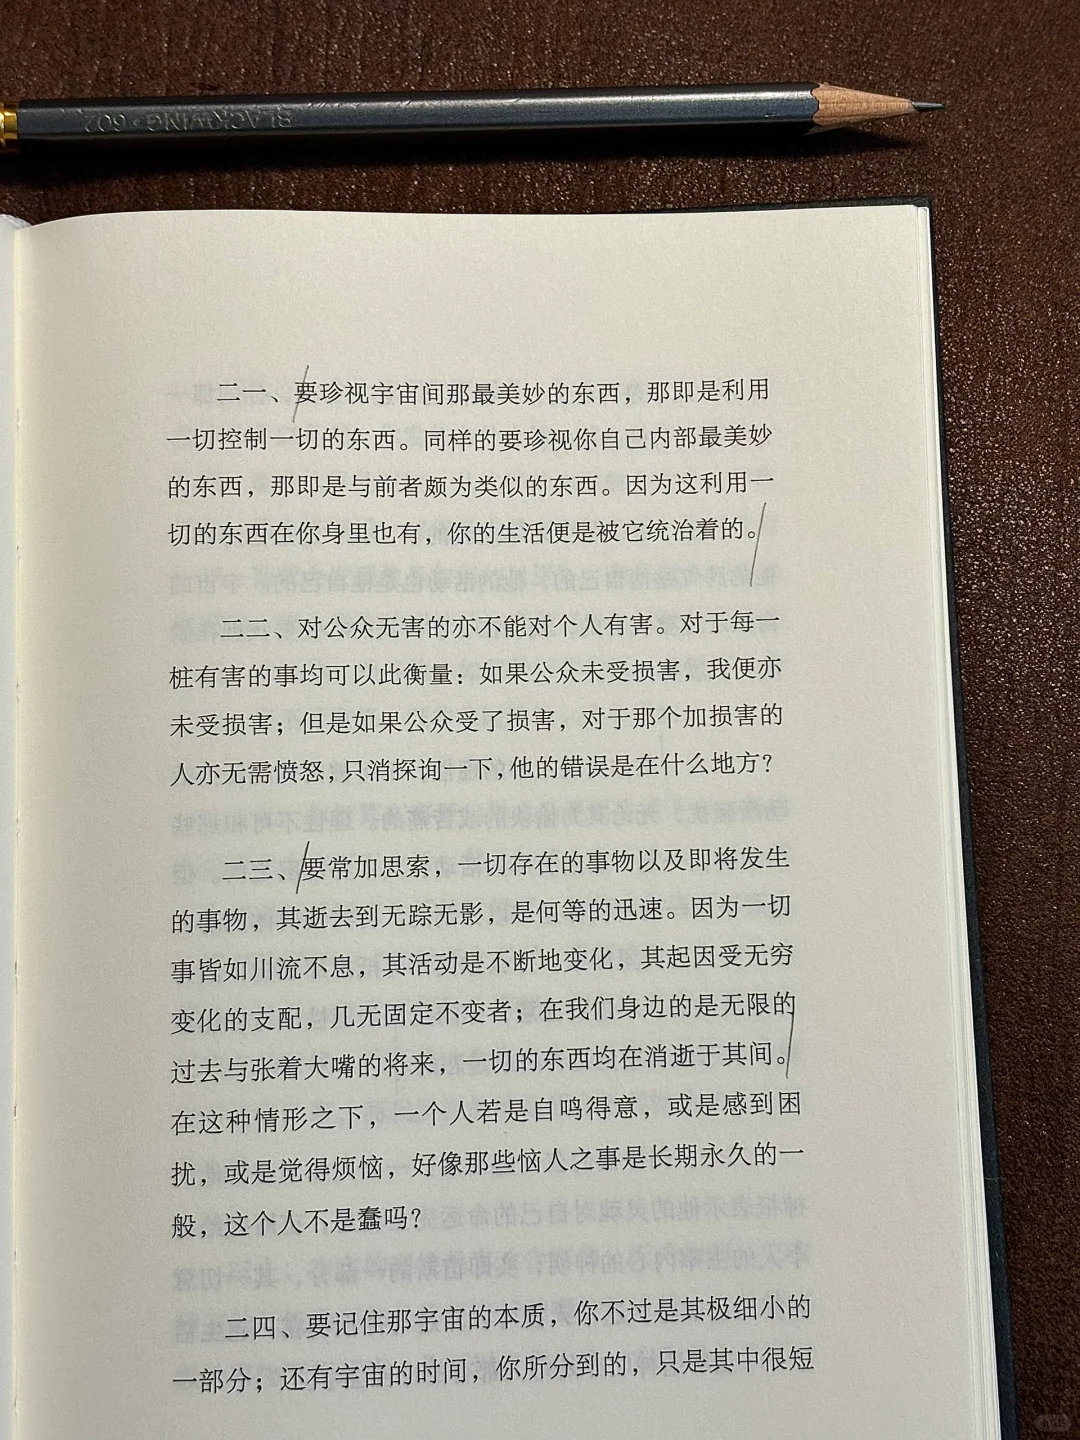 BLACKWING 602
二一、要珍视宇宙间那最美妙的东西，那即是利用
一切控制一切的东西。同样的要珍视你自己内部最美妙
的东西，那即是与前者颇为类似的东西。因为这利用一
切的东西在你身里也有，你的生活便是被它统治着的。
二二、对公众无害的亦不能对个人有害。对于每一
桩有害的事均可以此衡量：如果公众未受损害，我便亦
未受损害；但是如果公众受了损害，对于那个加损害的
人亦无需愤怒，只消探询一下，他的错误是在什么地方？
二三、要常加思索，一切存在的事物以及即将发生
的事物，其逝去到无踪无影，是何等的迅速。因为一切
事皆如川流不息，其活动是不断地变化，其起因受无穷
变化的支配，几无固定不变者；在我们身边的是无限的
过去与张着大嘴的将来，一切的东西均在消逝于其间。
在这种情形之下，一个人若是自鸣得意，或是感到困
扰，或是觉得烦恼，好像那些恼人之事是长期永久的一
般，这个人不是蠢吗？
二四、要记住那宇宙的本质，你不过是其极细小的
一部分；还有宇宙的时间，你所分到的，只是其中很短